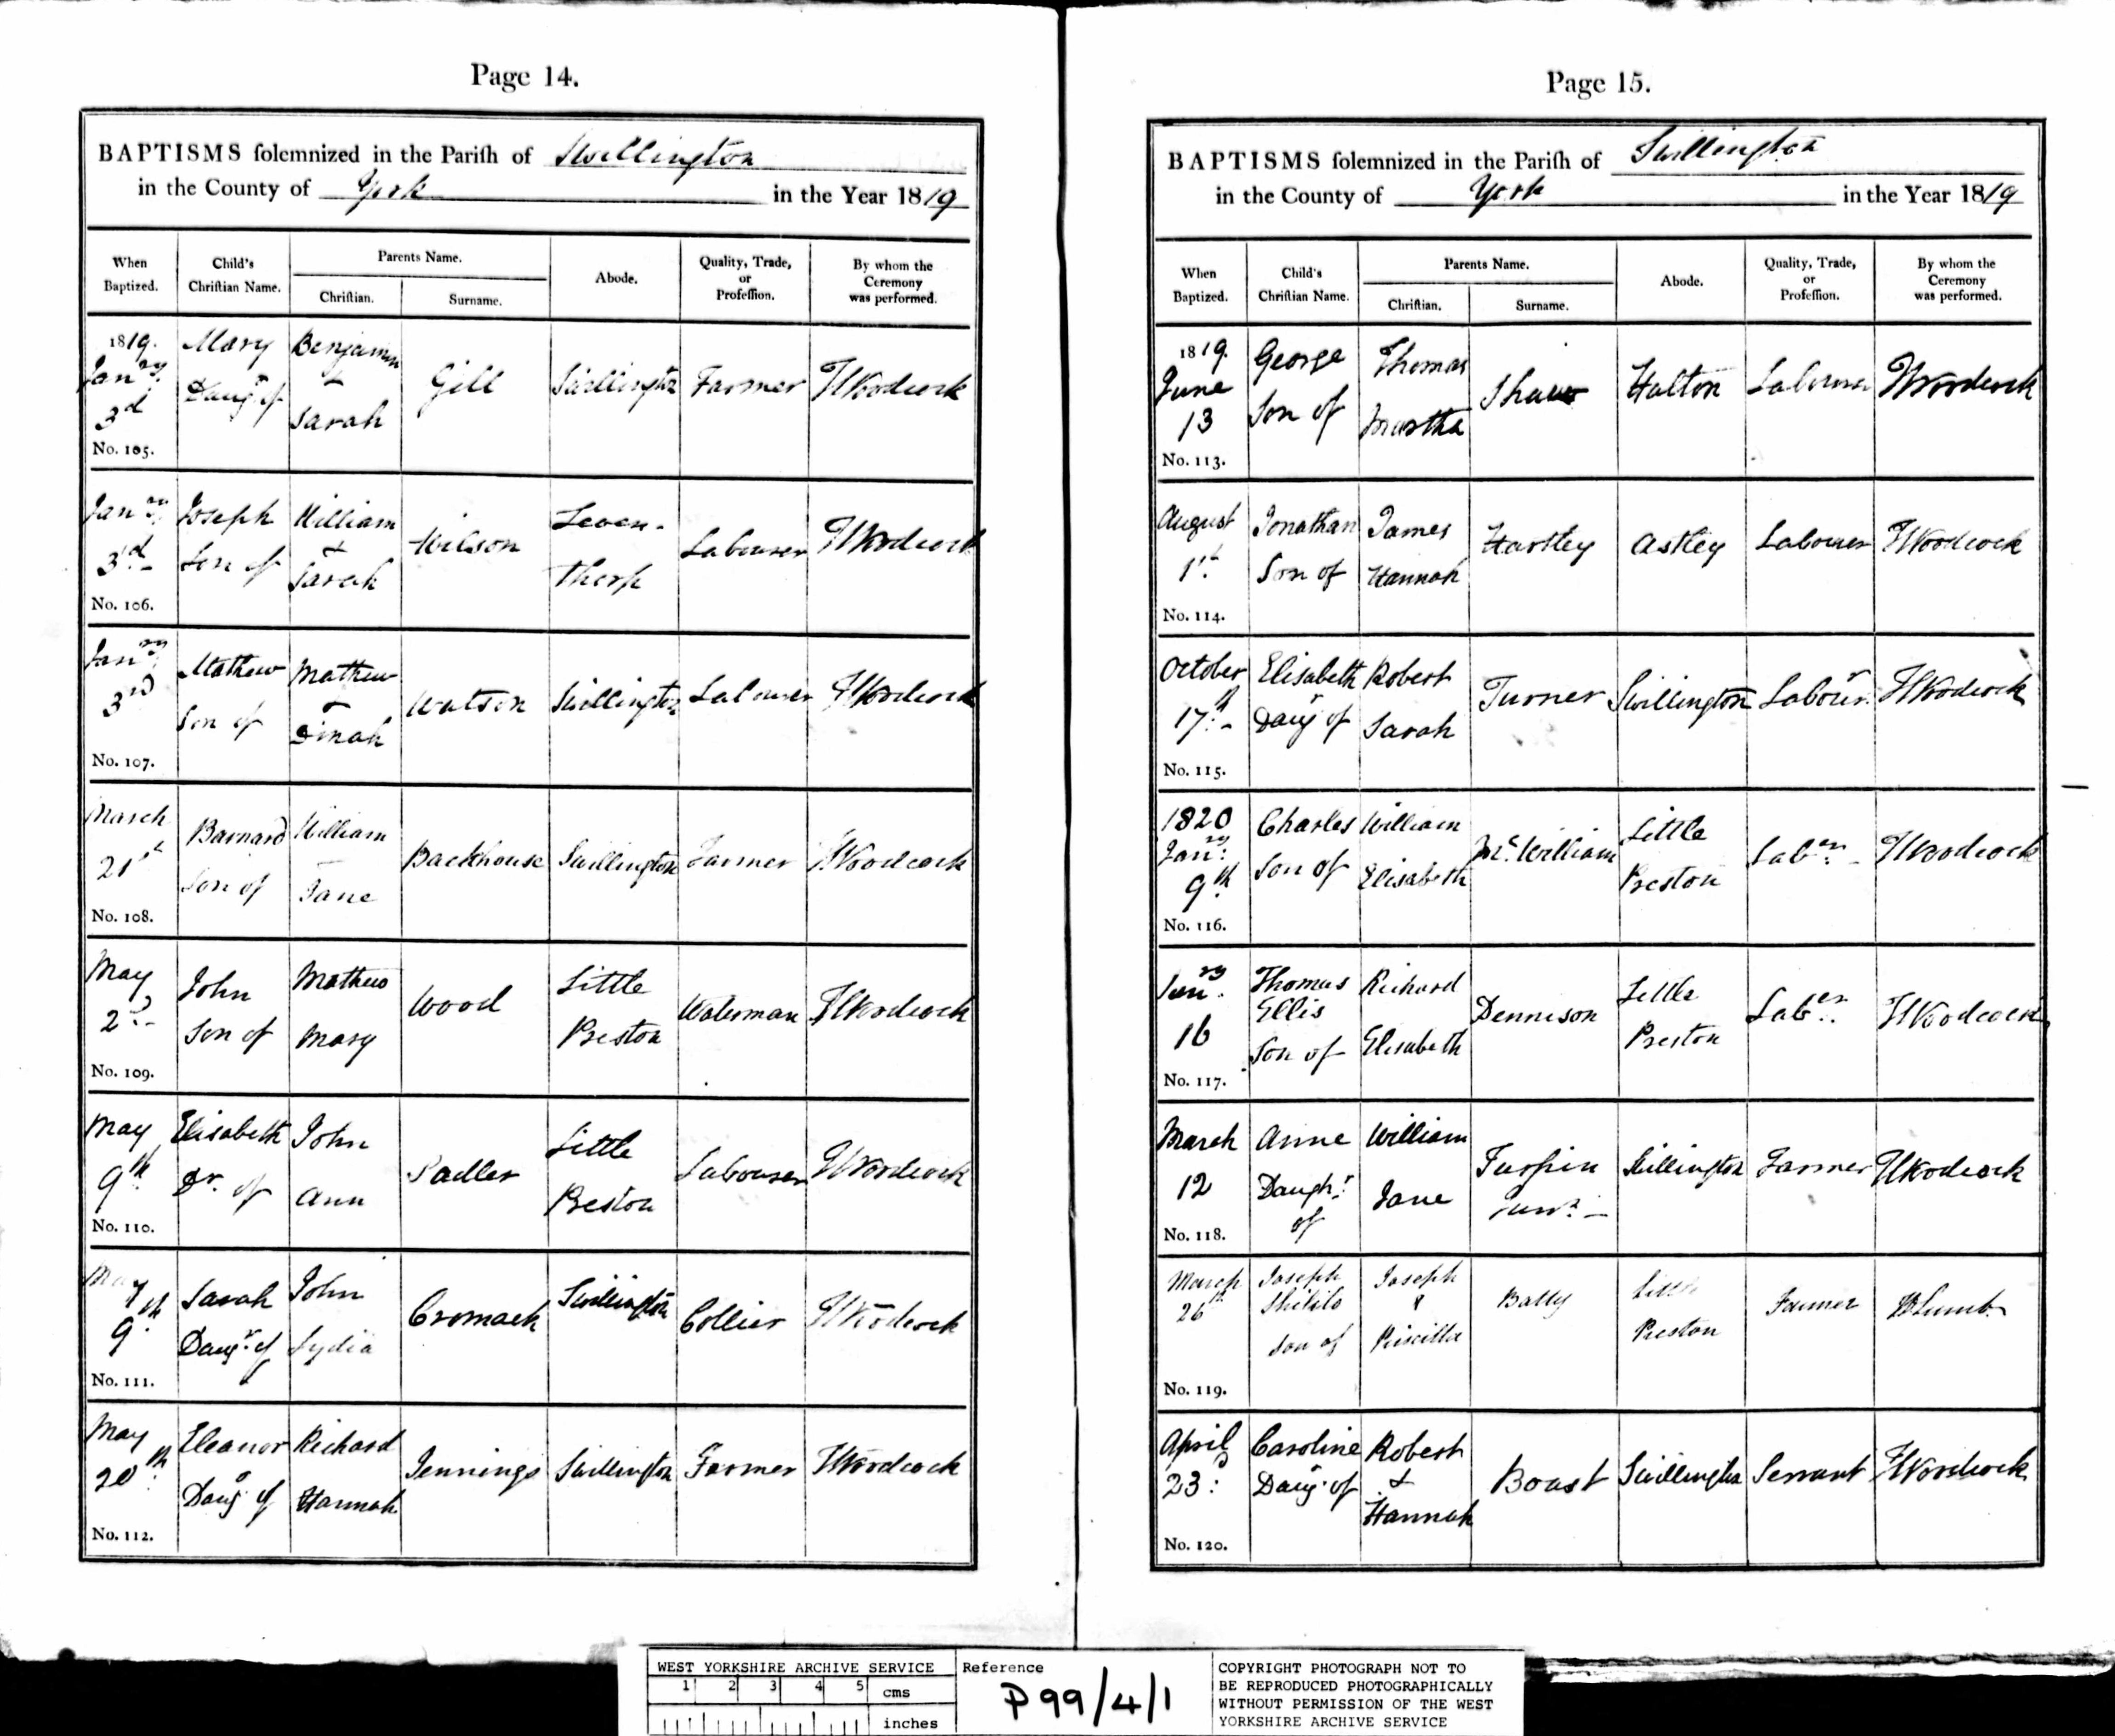 Page 14.
BAPTISMS solemnized in the Parish of Swillington
in the County of York in the Year 1819
When Baptized. Child's Christian Name. Parents Name. Christian. Surname. Abode. Quality, Trade, or Profession. By whom the Ceremony was performed.
1819. Jany. 3d No. 105. Mary Daugr. of Benjamin + Sarah Gill Swillington Farmer T Woodcock
Jany. 3d No. 106. Joseph Son of William + Sarah Wilson Leven-thorp Labourer T Woodcock
Jany. 3rd No. 107. Mathew Son of Mathew + Dinah Watson Swillington Labourer T Woodcock
March 21st No. 108. Barnard Son of William Jane Backhouse Swillington Farmer T Woodcock
May 2d No. 109. John Son of Mathew Mary Wood Little Preston Waterman T Woodcock
May 9th No. 110. Elisabeth Dr. of John Ann Sadler Little Preston Labourer T Woodcock
May 9th No. 111. Sarah Daugr. of John Lydia Cromack Swillington Collier T Woodcock
May 20th No. 112. Eleanor Daugr of Richard Hannah Jennings Swillington Farmer T Woodcock
Page 15.
BAPTISMS solemnized in the Parish of Swillington
in the County of York in the Year 1819
When Baptized. Child's Christian Name. Parents Name. Christian. Surname. Abode. Quality, Trade, or Profession. By whom the Ceremony was performed.
1819. June 13 No. 113. George Son of Thomas Martha Shaw Halton Labourer T Woodcock
August 1st No. 114. Jonathan Son of James Hannah Hartley Astley Labourer T Woodcock
October 17th No. 115. Elisabeth Daugr of Robert Sarah Turner Swillington Labourr. T Woodcock
1820 Jany. 9th No. 116. Charles Son of William Elisabeth Mc. William Little Preston Laber. T Woodcock
Jany. 16 No. 117. Thomas Ellis Son of Richard Elisabeth Dennison Little Preston Laber. T Woodcock
March 12 No. 118. Anne Daughr. of William Jane Turpin Junr. Swillington Farmer T Woodcock
March 26th No. 119. Joseph Son of Joseph & Priscilla Batty Little Preston Farmer
April 23d No. 120. Caroline Daugr. of Robert + Hannah Boast Swillington Servant T Woodcock
WEST YORKSHIRE ARCHIVE SERVICE
1 2 3 4 5 cms
inches
Reference
P99/4/1
COPYRIGHT PHOTOGRAPH NOT TO
BE REPRODUCED PHOTOGRAPHICALLY
WITHOUT PERMISSION OF THE WEST
YORKSHIRE ARCHIVE SERVICE